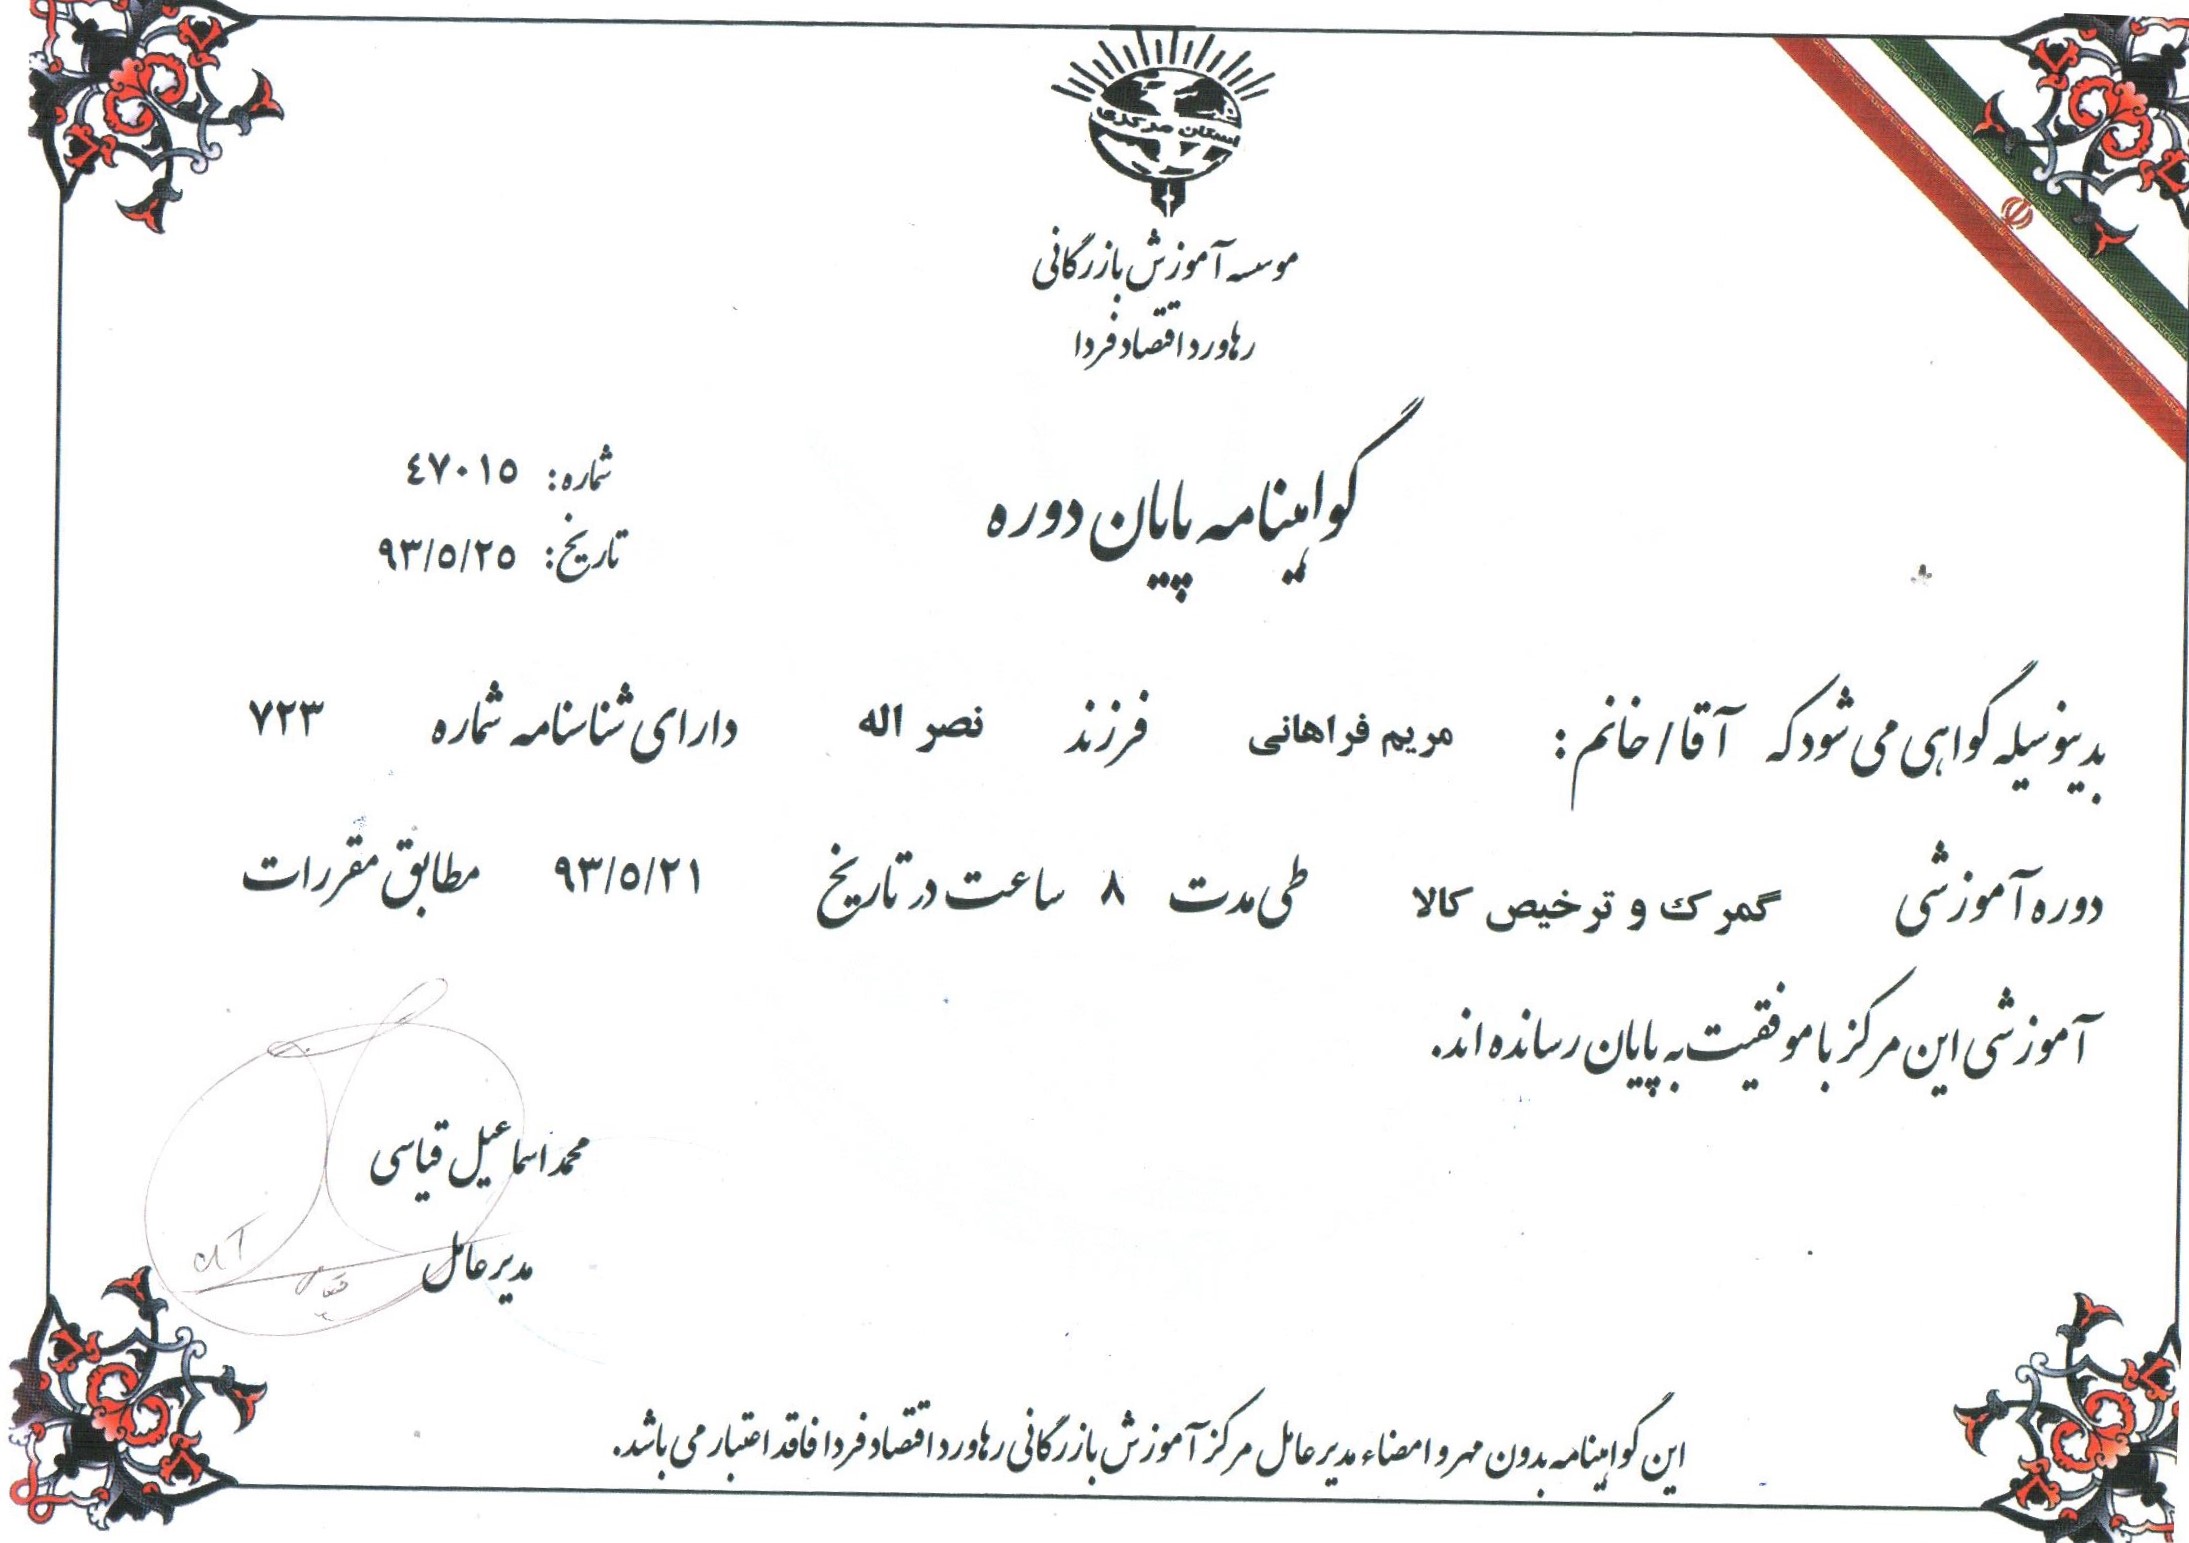 استان مرکزی
موسسه آموزش بازرگانی
رهاورد اقتصاد فردا
شماره: ٤٧٠١٥
تاریخ: ٩٣/٥/٢٥
گواهینامه پایان دوره
بدینوسیله گواهی می شود که آقا/خانم: مریم فراهانی فرزند نصر اله دارای شناسنامه شماره ٧٢٣
دوره آموزشی گمرک و ترخیص کالا طی مدت ٨ ساعت در تاریخ ٩٣/٥/٢١ مطابق مقررات
آموزشی این مرکز با موفقیت به پایان رسانده اند.
محمد اسماعیل قیاسی
مدیر عامل
این گواهینامه بدون مهر و امضاء مدیر عامل مرکز آموزش بازرگانی رهاورد اقتصاد فردا فاقد اعتبار می باشد.